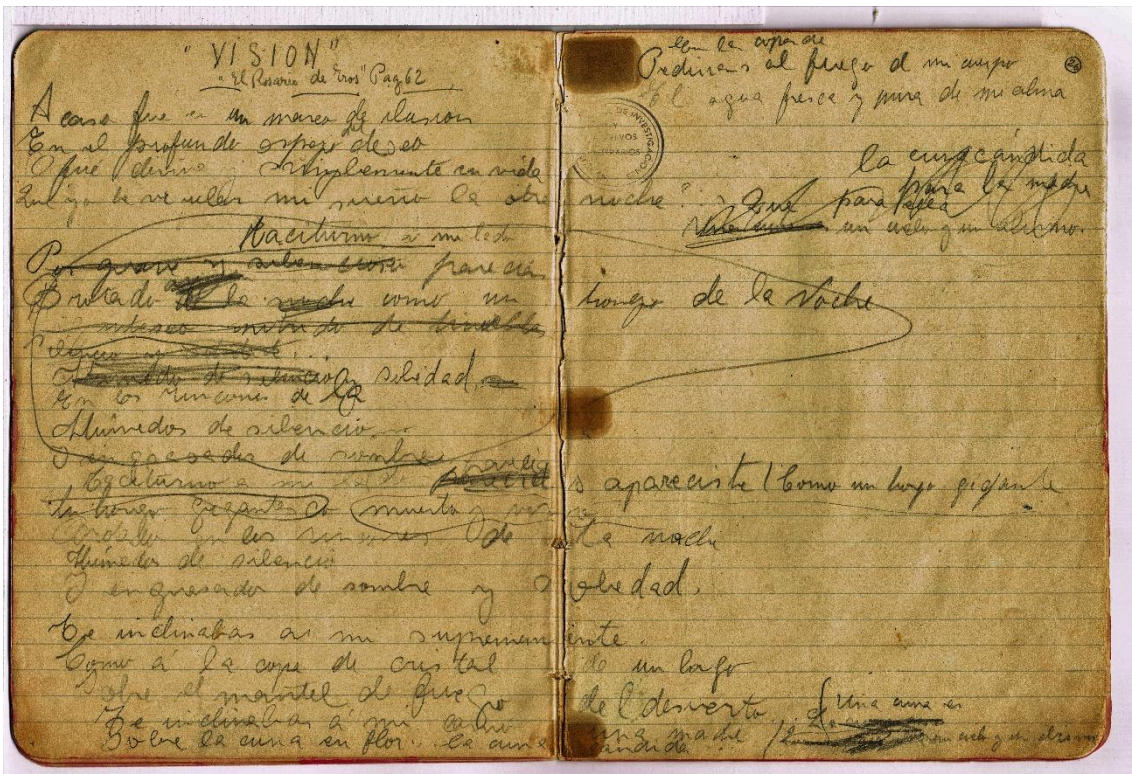 "VISION"
"El Rosario de Eros" Pag 62
Acaso fue en un marco de ilusion
En el profundo espejo del deseo
O fué divina y simplemente en vida
Que yo te ví velar mi sueño la otra noche?...
Taciturno a mi lado
Por grave y silencioso parecías
Brotado de la noche como un hongo de la Noche
intenso de tiniebla
Silencio
Húmedo de silencio soledad.
En los rincones de la
Húmedos de silencio
I engrasados de sombra
Taciturno a mi lado apareciste! Como un hongo gigante
Un hongo gigantesco muerto y vivo
Brotado en los rincones de la noche
Húmedos de silencio
I engrasados de sombra y soledad.
Te inclinabas a mí supremamente.
Como á la copa de cristal de un lago
Sobre el mantel de fuego del desierto
Te inclinabas á mi como una madre
Sobre la cuna en flor... la cuna cándida
Una cuna es
un cielo y un abismo
Con la copa de
Pedirnos al fuego d mi cuerpo
El agua fresca y pura de mi alma
la cuna cándida
para la madre
Que para ella
un cielo y un abismo.